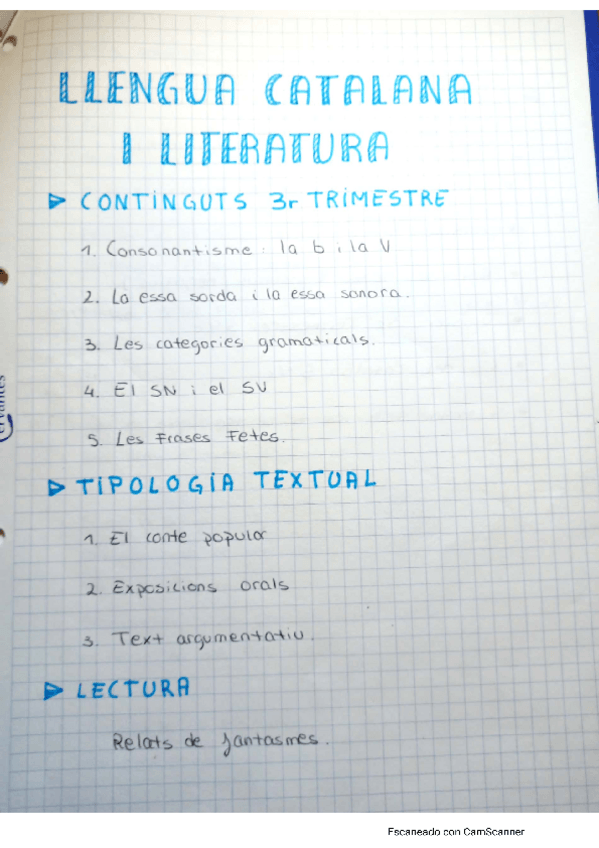 LLENGUA CATALANA
I LITERATURA
CONTINGUTS 3r TRIMESTRE
1. Consonantisme: la b i la V
2. La essa sorda i la essa sonora.
3. Les categories gramaticals.
4. El SN i el SV
5. Les Frases Fetes.
TIPOLOGIA TEXTUAL
1. El conte popular
2. Exposicions orals
3. Text argumentatiu.
LECTURA
Relats de fantasmes.
Escaneado con CamScanner